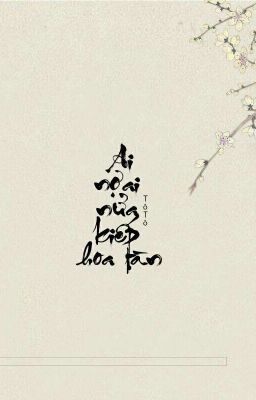 Ai
nợ ai
nửa
kiếp
hoa tàn
TôTô